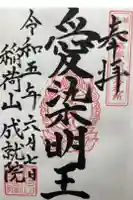 奉拝
愛染明王
令和五年六月七日
稲荷山成就院